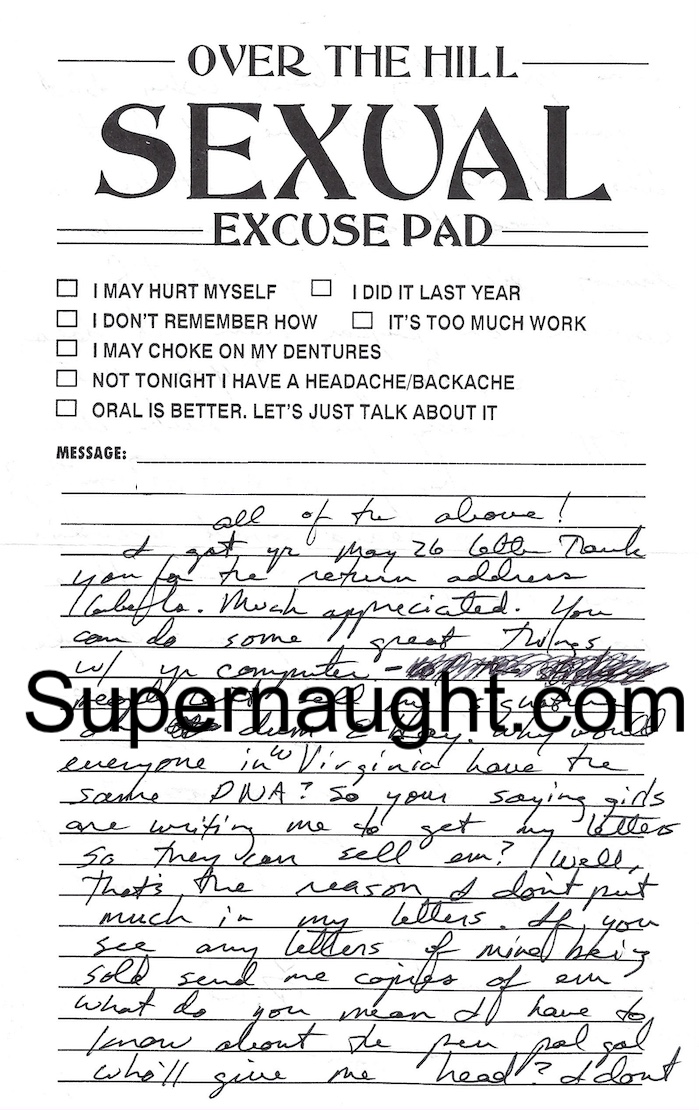 OVER THE HILL
SEXUAL
EXCUSE PAD
I MAY HURT MYSELF I DID IT LAST YEAR
I DON'T REMEMBER HOW IT'S TOO MUCH WORK
I MAY CHOKE ON MY DENTURES
NOT TONIGHT I HAVE A HEADACHE/BACKACHE
ORAL IS BETTER. LET'S JUST TALK ABOUT IT
MESSAGE:
all of the above!
I got yr May 26 letter Thank
you for the return address
labels. Much appreciated. You
can do some great things
w/ yr computer -
Supernaught.com
why would
everyone in W Virginia have the
same DNA? So your saying girls
are writing me to get my letters
so they can sell em? Well,
that's the reason I don't put
much in my letters. If you
see any letters of mine being
sold send me copies of em
what do you mean I'll have to
know about the pen pal gal
who'll give me head? I dont